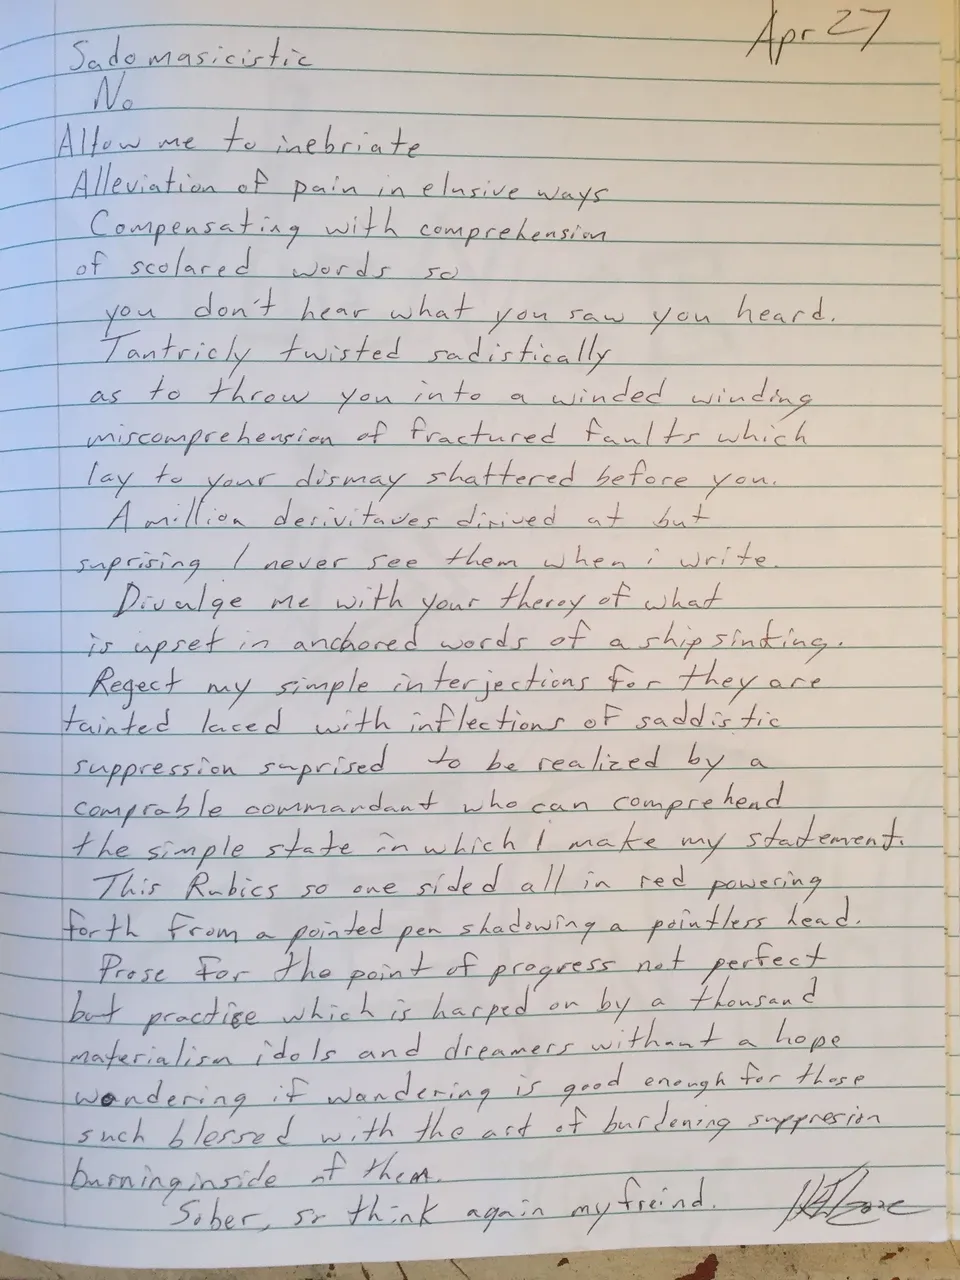 Apr 27
Sadomasicistic
No
Allow me to inebriate
Alleviation of pain in elusive ways
Compensating with comprehension
of scolared words so
you don't hear what you saw you heard.
Tantricly twisted sadistically
as to throw you into a winded winding
miscomprehension of fractured faults which
lay to your dismay shattered before you.
A million derivitaves dirived at but
suprising I never see them when i write.
Divulge me with your theroy of what
is upset in anchored words of a ship sinking.
Regect my simple interjections for they are
tainted laced with inflections of saddistic
suppression suprised to be realized by a
comprable commandant who can comprehend
the simple state in which I make my statement.
This Rubics so one sided all in red powering
forth from a pointed pen shadowing a pointless head.
Prose for the point of progress not perfect
but practice which is harped on by a thousand
materialism idols and dreamers without a hope
wondering if wandering is good enough for those
such blessed with the art of burdening suppresion
burning inside of them.
Sober, so think again my freind.